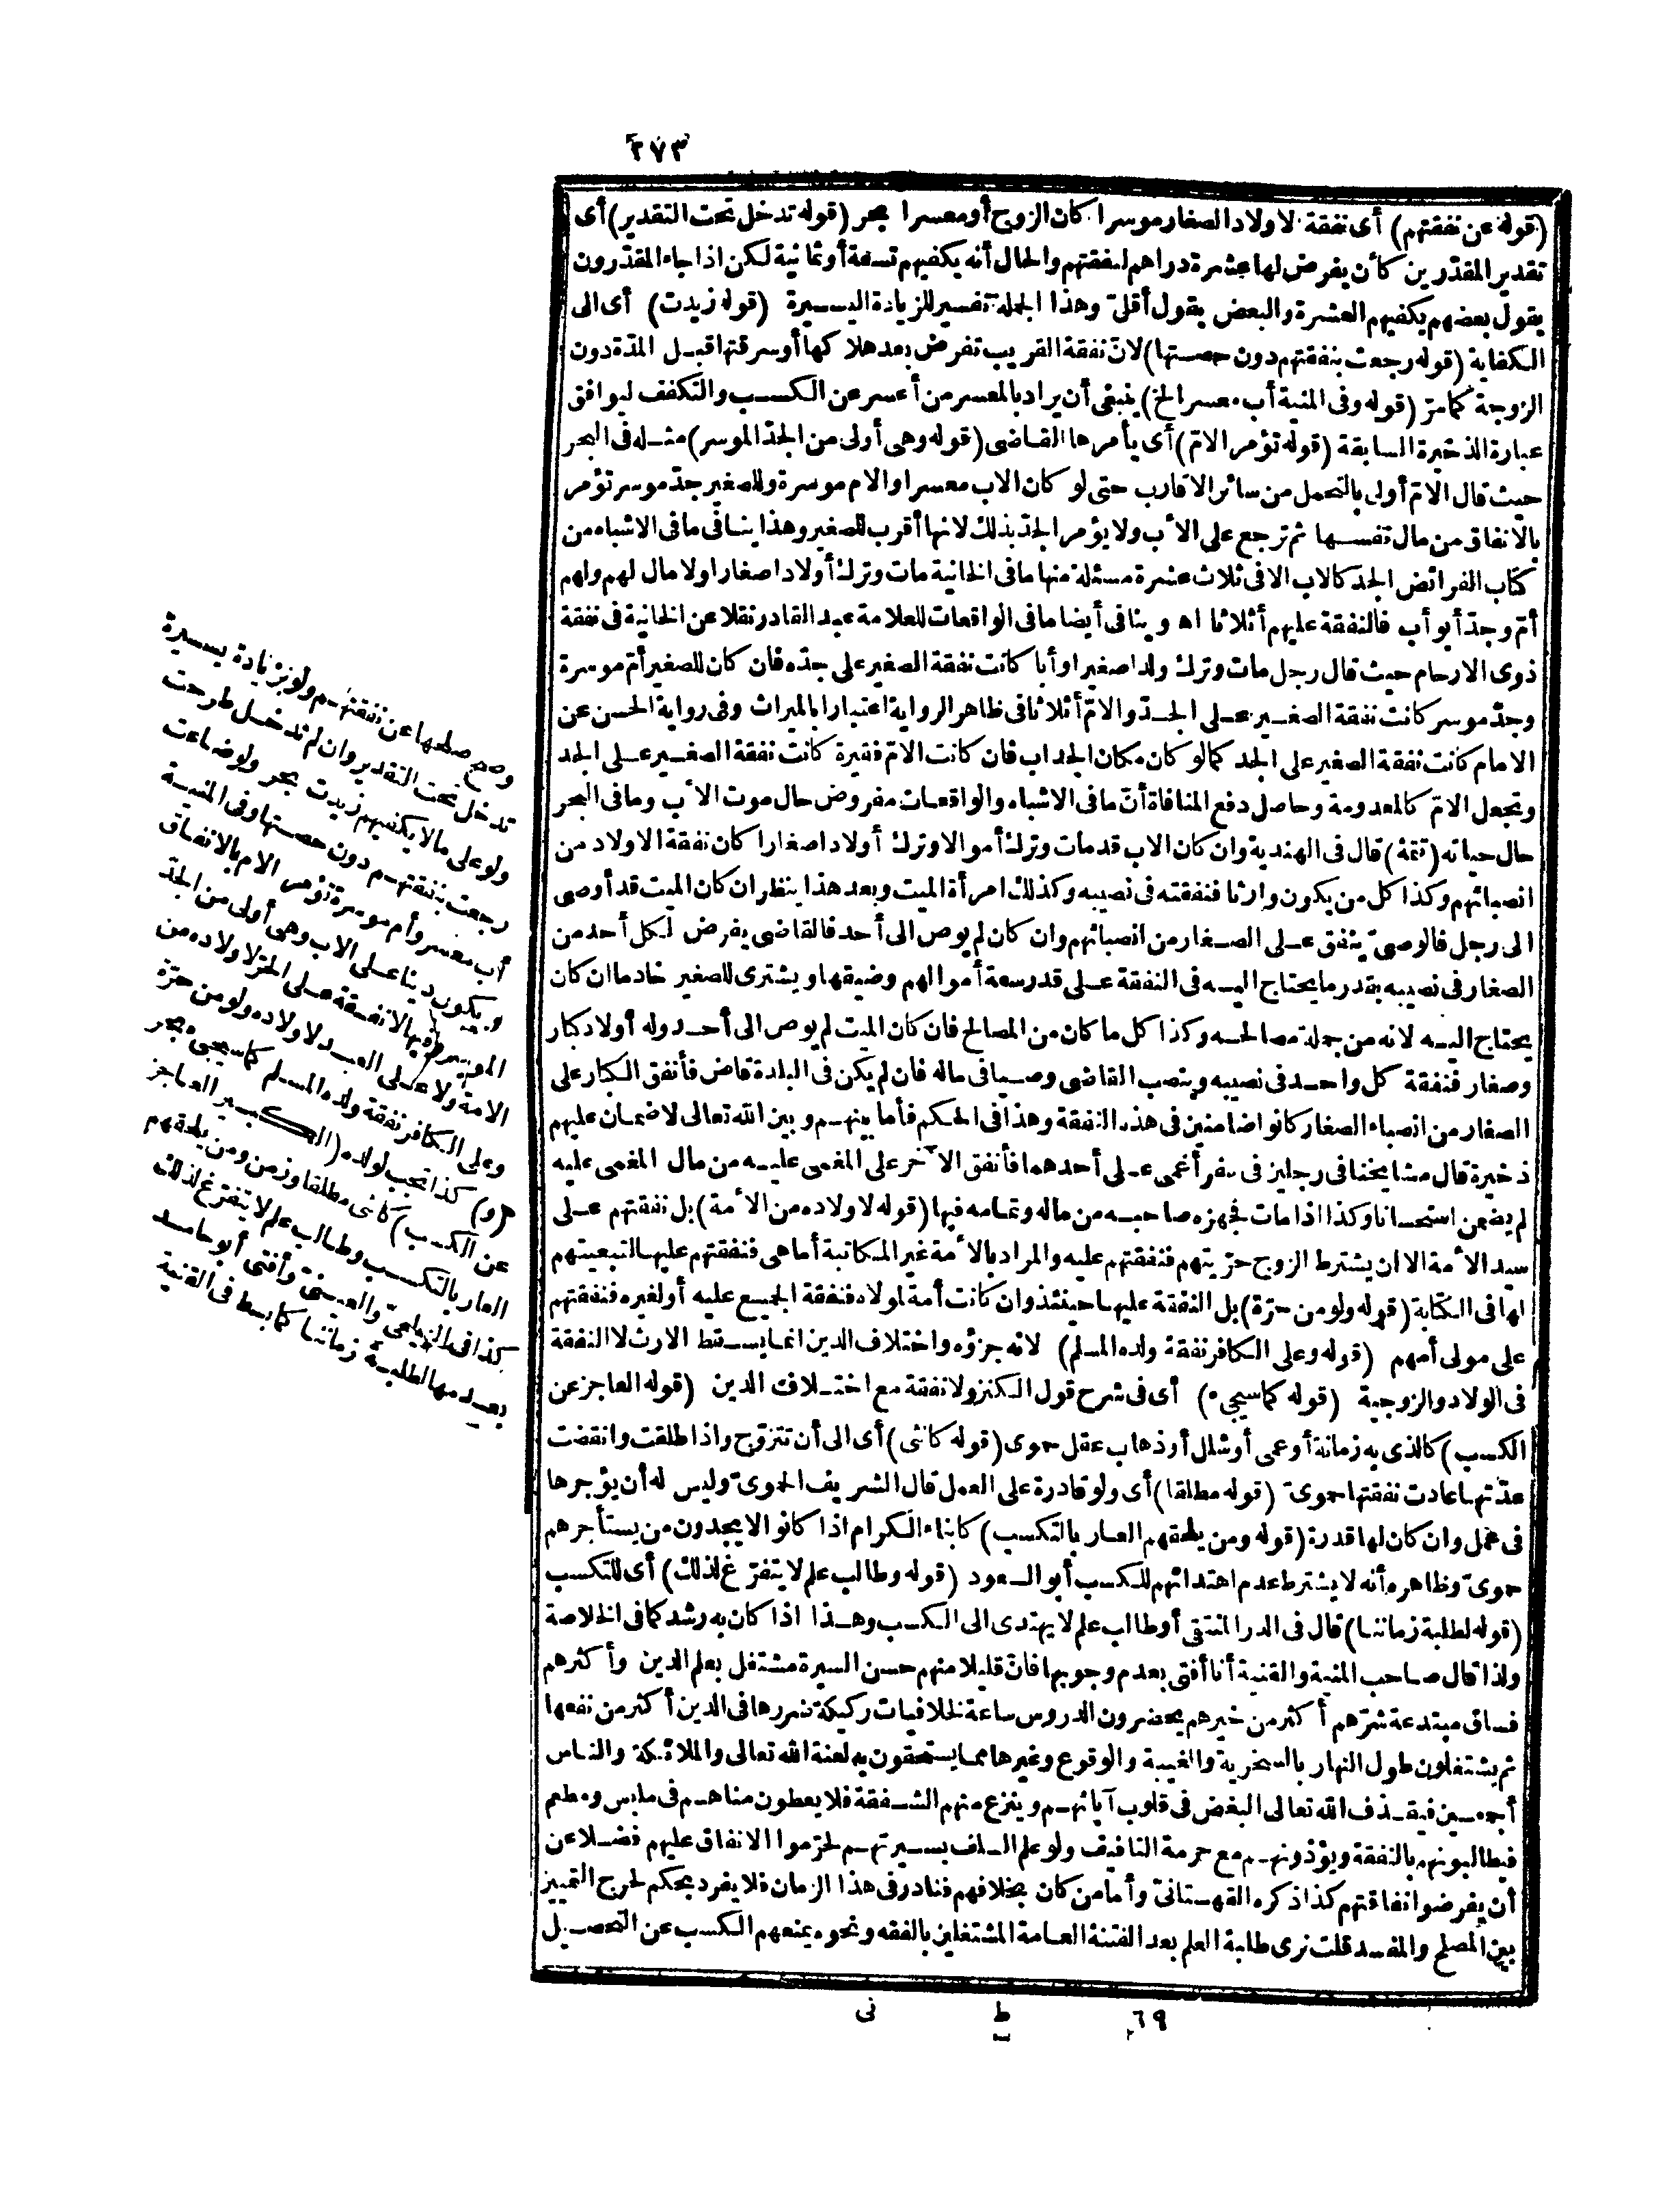 ٢٧٣
(قوله عن نفقتهم) أى نفقة الاولاد الصغار موسرا كان الزوج أو معسرا بحر (قوله تدخل تحت التقدير) أى
تقدير المقدّرين كأن يفرض لها عشرة دراهم لنفقتهم والحال أنه يكفيهم تسعة أو ثمانية لكن اذا جاء المقدّرون
يقول بعضهم يكفيهم العشرة والبعض يقول أقلّ وهذا الجملة تفسير للزيادة اليسيرة (قوله زيدت) أى الى
الكفاية (قوله رجعت بنفقتهم دون حصتها) لانّ نفقة القريب تفرض بعد هلاكها أو سرقتها قبل المدّة دون
الزوجة كما مرّ (قوله وفى المنية أب معسر الخ) ينبغى أن يراد بالمعسر من أعسر عن الكسب والتكفف ليوافق
عبارة الذخيرة السابقة (قوله تؤمر الامّ) أى يأمرها القاضى (قوله وهى أولى من الجدّ الموسر) مثله فى البحر
حيث قال الامّ أولى بالتحمل من سائر الاقارب حتى لو كان الاب معسرا والام موسرة وللصغير جدّ موسر تؤمر
بالانفاق من مال نفسها ثم ترجع على الأب ولا يؤمر الجدّ بذلك لانها أقرب للصغير وهذا ينافى ما فى الاشباه من
كتاب الفرائض الجدّ كالاب الا فى ثلاث عشرة مسئلة منها ما فى الخانية مات وترك أولادا صغارا ولا مال لهم ولهم
أمّ وجدّ أبو أب فالنفقة عليهم أثلاثا اه وينافى أيضا ما فى الواقعات للعلامة عبد القادر نقلا عن الخانية فى نفقة
ذوى الارحام حيث قال رجل مات وترك ولدا صغيرا وأبا كانت نفقة الصغير على جدّه فان كان للصغير أمّ موسرة
وجدّ موسر كانت نفقة الصغير على الجدّ والامّ أثلاثا فى ظاهر الرواية اعتبارا بالميراث وفى رواية الحسن عن
الامام كانت نفقة الصغير على الجد كما لو كان مكان الجد اب فان كانت الامّ فقيرة كانت نفقة الصغير على الجد
وتجعل الامّ كالمعدومة وحاصل دفع المنافاة أنّ ما فى الاشباه والواقعات مفروض حال موت الأب وما فى البحر
حال حياته (تتمة) قال فى الهندية وان كان الاب قد مات وترك أموالا وترك أولادا صغارا كان نفقة الاولاد من
انصبائهم وكذا كل من يكون وارثا فنفقته فى نصيبه وكذلك امرأة الميت وبعد هذا ينظر ان كان الميت قد أوصى
الى رجل فالوصىّ ينفق على الصغار من انصبائهم وان كان لم يوص الى أحد فالقاضى يفرض لكل أحد من
الصغار فى نصيبه بقدر ما يحتاج اليه فى النفقة على قدر سعة أموالهم وضيقها ويشترى للصغير خادما ان كان
يحتاج اليه لانه من جملة مصالحه وكذا كل ما كان من المصالح فان كان الميت لم يوص الى أحد وله أولاد كبار
وصغار فنفقة كل واحد فى نصيبه وينصب القاضى وصيا فى ماله فان لم يكن فى البلدة قاض فأنفق الكبار على
الصغار من انصباء الصغار كانوا ضامنين فى هذه النفقة وهذا فى الحكم فأما بينهم وبين الله تعالى لا ضمان عليهم
ذخيرة قال مشايخنا فى رجلين فى سفر أغمى على أحدهما فأنفق الآخر على المغمى عليه من مال المغمى عليه
لم يضمن استحسانا وكذا اذا مات فجهزه صاحبه من ماله وتمامه فيها (قوله لا ولاده من الأمة) بل نفقتهم على
سيد الأمة الا ان يشترط الزوج حرّيتهم فنفقتهم عليه والمراد بالأمة غير المكاتبة أما هى فنفقتهم عليها لتبعيتهم
لها فى الكتابة (قوله ولو من حرّة) بل النفقة عليها حينئذ وان كانت أمة لمولاه فنفقة الجميع عليه أو لغيره فنفقتهم
على مولى أمهم (قوله وعلى الكافر نفقة ولده المسلم) لانه جزؤه واختلاف الدين انما يسقط الارث لا النفقة
فى الولاد والزوجية (قوله كما سيجىء) أى فى شرح قول الكنز ولا نفقة مع اختلاف الدين (قوله العاجز عن
الكسب) كالذى به زمانة أو عمى أو شلل أو ذهاب عقل حموى (قوله كانثى) أى الى أن تتزوّج واذا طلقت وانقضت
عدّتها عادت نفقتها حموىّ (قوله مطلقا) أى ولو قادرة على العمل قال الشريف الحموىّ وليس له أن يؤجرها
فى عمل وان كان لها قدرة (قوله ومن يلحقهم العار بالتكسب) كابناء الكرام اذا كانوا لا يجدون من يستأجرهم
حموىّ وظاهره أنه لا يشترط عدم اهتدائهم للكسب أبو السعود (قوله وطالب علم لا يتفرّغ لذلك) أى للتكسب
(قوله لطلبة زماننا) قال فى الدر المنتقى أو طالب علم لا يهتدى الى الكسب وهذا اذا كان به رشد كما فى الخلاصة
ولذا قال صاحب المنية والقنية أنا أفتى بعدم وجوبها فانّ قليلا منهم حسن السيرة مشتغل بعلم الدين وأكثرهم
فساق مبتدعة شرّهم أكثر من خيرهم يحضرون الدروس ساعة لخلافيات ركيكة ضررها فى الدين أكثر من نفعها
ثم يشتغلون طول النهار بالسخرية والغيبة والوقوع وغيرها مما يستحقون به لعنة الله تعالى والملائكة والناس
أجمعين فيقذف الله تعالى البغض فى قلوب آبائهم وينزع منهم الشفقة فلا يعطون مناهم فى ملبس ومطعم
فيطالبونهم بالنفقة ويؤذونهم مع حرمة التافيف ولو علم السلف بسيرتهم لحرّموا الانفاق عليهم فضلا عن
أن يفرضوا نفاقتهم كذا ذكره القهستانىّ وأما من كان بخلافهم فنادر فى هذا الزمان فلا يفرد بحكم لحرج التمييز
بين المصلح والمفسد قلت نرى طلبة العلم بعد الفتنة العامة المشتغلين بالفقه ونحوه يمنعهم الكسب عن التحصيل
٦٩ ط نى
وصح صلحها عن نفقتهم ولو بزيادة يسيرة
تدخل تحت التقدير وان لم تدخل طرحت
ولو على ما لا يكفيهم زيدت بحر ولو ضاعت
رجعت بنفقتهم دون حصتها وفى المنية
أب معسر وأم موسرة تؤمر الام بالانفاق
ويكون دينا على الاب وهى أولى من الجدّ
الموسر وفيها لا نفقة على الحرّ لا ولاده من
الامة ولا على العبد لا ولاده ولو من حرّة
وعلى الكافر نفقة ولده المسلم كما سيجىء بحر
(و) كذا تجب لولده (الكبير العاجز
عن الكسب) كانثى مطلقا وزمن ومن يلحقهم
العار بالتكسب وطالب علم لا يتفرّغ لذلك
كذا فى الزيلعىّ والعينىّ وأفتى أبو حامد
بعدمها لطلبة زماننا كما بسط فى القنية